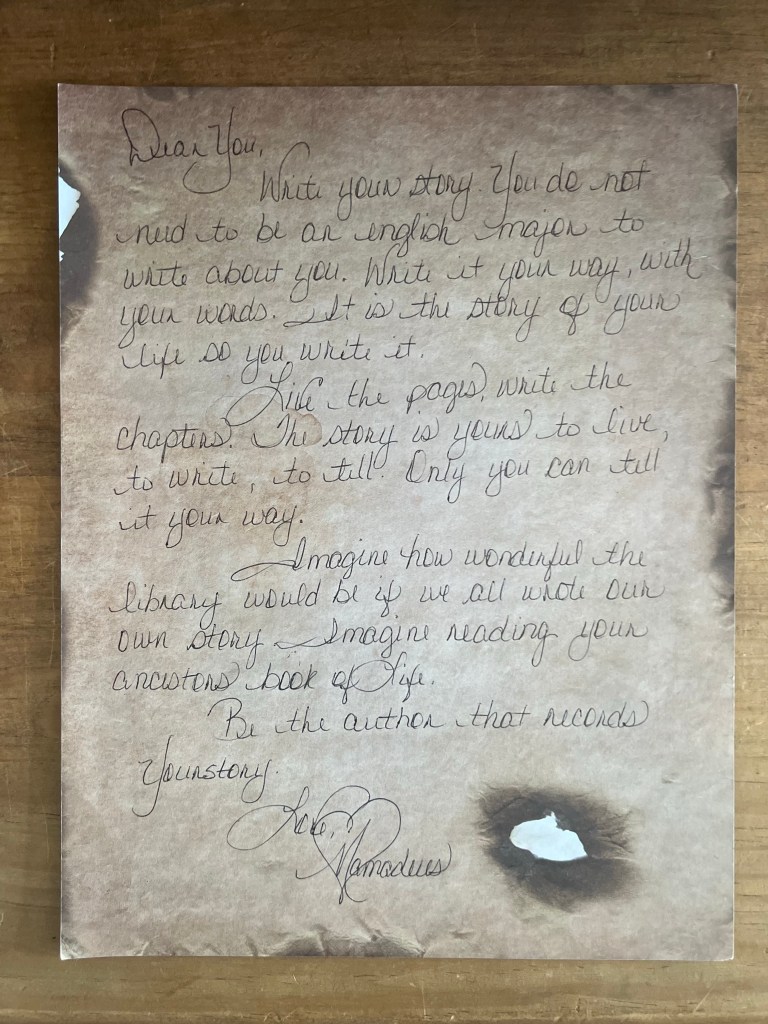 Dear You,
Write your story. You do not
need to be an english major to
write about you. Write it your way, with
your words. It is the story of your
life so you write it.
Live the pages, write the
chapters. The story is yours to live,
to write, to tell. Only you can tell
it your way.
Imagine how wonderful the
library would be if we all wrote our
own story. Imagine reading your
ancestors book of life.
Be the author that records
Yourstory.
Love,